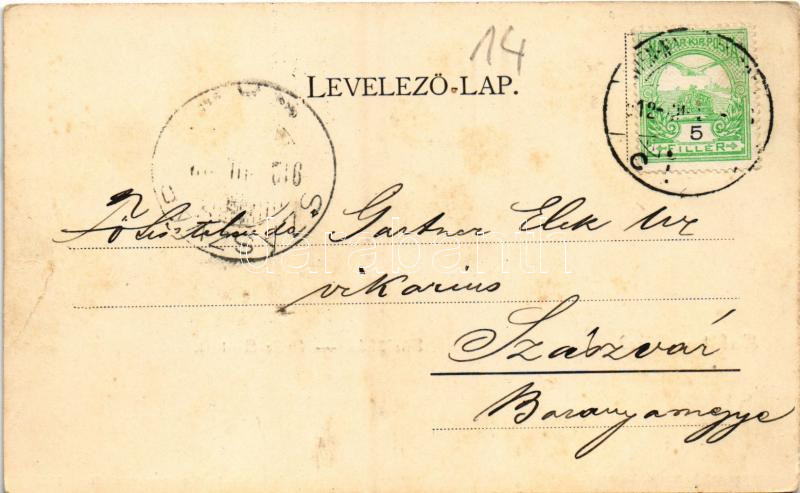 14
LEVELEZŐ-LAP.
MAGYAR KIR. POSTA
5
FILLÉR
Főtisztelendő Gartner Elek Úr
vikarius
Szászvár
Baranyamegye
darabanth